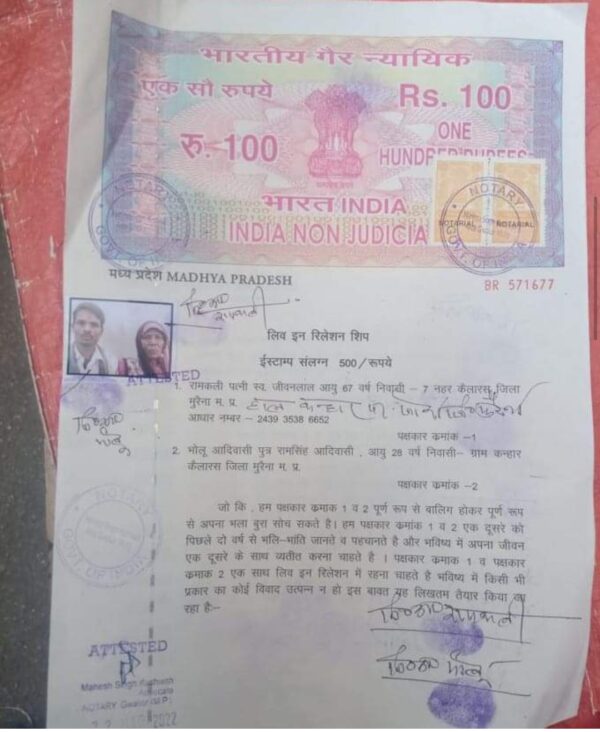 भारतीय गैर न्यायिक
एक सौ रुपये
Rs. 100
रु. 100
ONE
HUNDRED RUPEES
भारत INDIA
INDIA NON JUDICIA
NOTARY
NOTARIAL NOTARIAL
GOVT. OF INDIA
मध्य प्रदेश MADHYA PRADESH
BR 571677
लिव इन रिलेशन शिप
ईस्टाम्प संलग्न 500/रूपये
ATTESTED
1. रामकली पत्नी स्व. जीवनलाल आयु 67 वर्ष निवासी – 7 नहर कैलारस जिला
मुरैना म. प्र.
आधार नम्बर – 2439 3538 6652
पक्षकार कमांक -1
2. भोलू आदिवासी पुत्र रामसिंह आदिवासी , आयु 28 वर्ष निवासी– ग्राम कन्हार
कैलारस जिला मुरैना म. प्र.
पक्षकार कमांक -2
जो कि , हम पक्षकार कमाक 1 व 2 पूर्ण रूप से बालिग होकर पूर्ण रूप
से अपना भला बुरा सोच सकते है। हम पक्षकार कमांक 1 व 2 एक दूसरे को
पिछले दो वर्ष से भलि-भांति जानते व पहचानते है और भविष्य में अपना जीवन
एक दूसरे के साथ व्यतीत करना चाहते है । पक्षकार कमांक 1 व पक्षकार
कमाक 2 एक साथ लिव इन रिलेशन में रहना चाहते है भविष्य में किसी भी
प्रकार का कोई विवाद उत्पन्न न हो इस बावत यह लिखतम तैयार किया जा
रहा है:–
NOTARY
GOVT. OF INDIA
ATTESTED
Mahesh Singh
Advocate
NOTARY Gwalior (M.P.)
2022